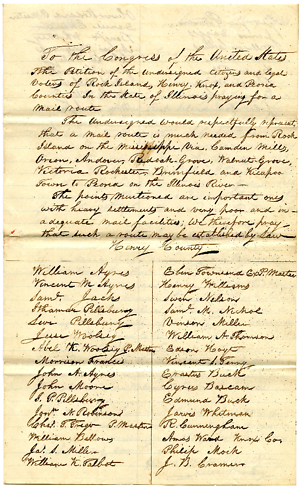 To the Congress of the United States
The Petition of the undersigned Citizens and legal
Voters of Rock Island, Henry, Knox, and Peoria
Counties In the State of Illinois praying for a
Mail route
The Undersigned would respectfully represent,
that a mail route is much needed from Rock
Island on the Mississippi Via. Camden Mills,
Orion, Andover, Grove, Walnut Grove,
Victoria Rochester, Brimfield and Kicapoo
Town to Peoria on the Illinois River—
The points mentioned are important ones
with heavy settlements and very poor and in-
adequate mail facilities, We therefore pray-
that such a route may be established by Law
Henry County
William Ayres
Vincent M. Ayres
Saml. Jack
Pillsbury
Levi Pillsbury
Woolsey
Abel K. Woolsey P. Master
Morrison Francis
John A. Ayres
John Moore
S. P. Pillsbury
Jont. M Robinson
Chas. T. P Master
William Bellows
Jas. S. Miller
William K. Talbot
Eben Townsend Ex P. Master
Henry Williams
Swen Nelson
Saml. M. Nichol
Vinson Miller
William A. Thomson
Hoyt
Vincent
Erastus Buck
Cyrus Bascam
Edmund Buck
Jarvis Whitman
R. Cunningham
Amos Ward Knox Co
Philip Mock
J. B. Cramer